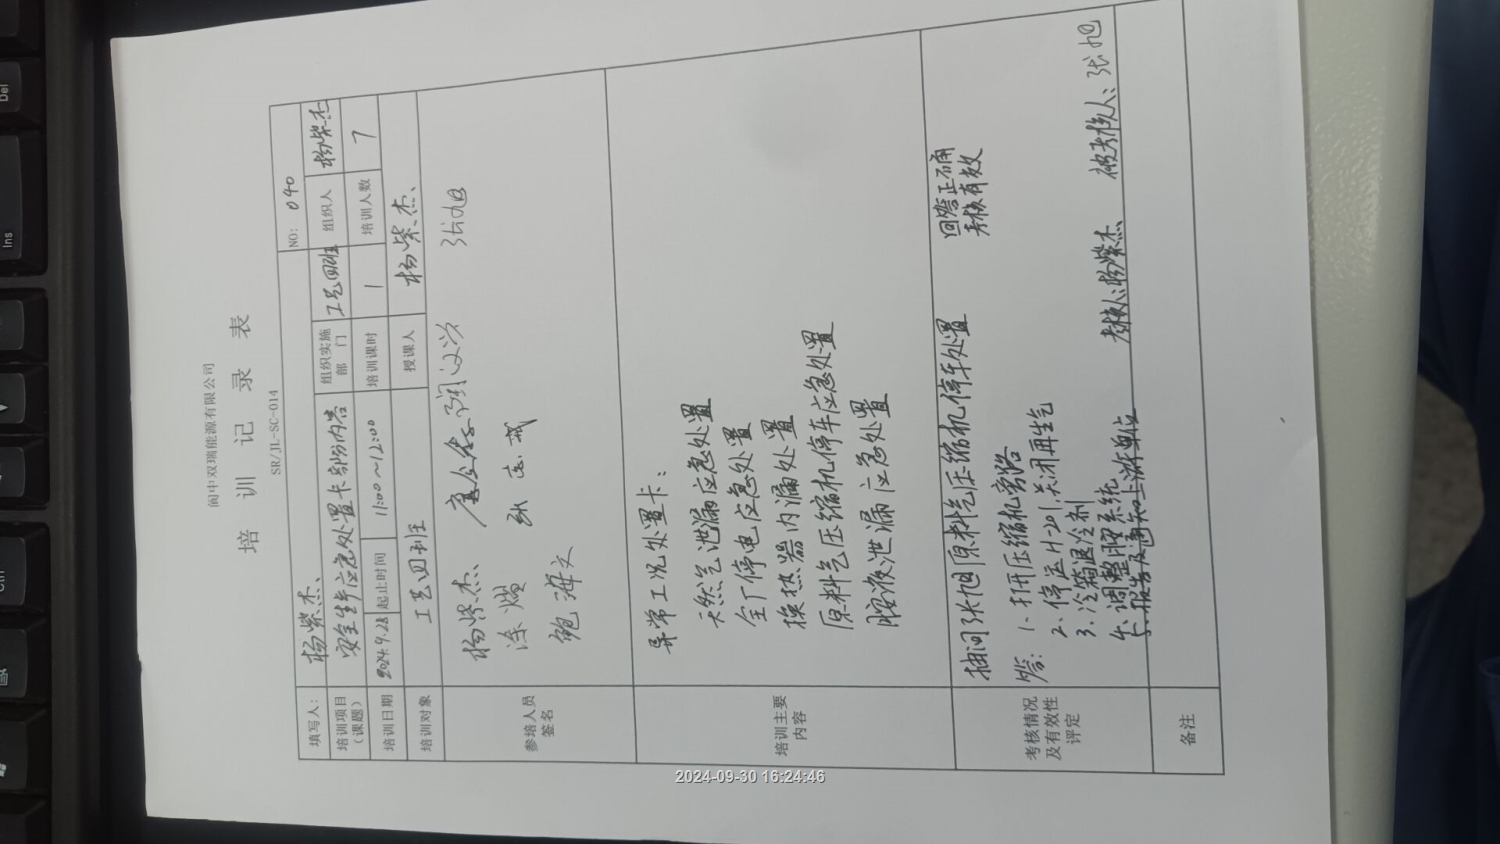 阆中双瑞能源有限公司
培 训 记 录 表
SR/JL-SC-014
填写人: 杨紫杰、 NO: 040
培训项目（课题） 安全生产应急处置卡部份内容 组织实施部门 工艺四班 组织人 杨紫杰
培训日期 2024.9.28 起止时间 11:00~12:00 培训课时 1 培训人数 7
培训对象 工艺四班 授课人 杨紫杰、
参培人员签名
杨紫杰、 张旭
涂
鲍海文
培训主要内容
异常工况处置卡:
天然气泄漏应急处置
全厂停电应急处置
换热器内漏处置
原料气压缩机停车应急处置
胺液泄漏应急处置
考核情况及有效性评定
抽问张旭原料气压缩机停车处置 回答正确
考核有效
答: 1. 打开压缩机旁路
2. 停运H-201,关闭再生气
3. 冷箱退冷剂
4. 调整脱系统
5. 报告及通知上游单位 考核人:杨紫杰 被考核人:张旭
备注
2024-09-30 16:24:46
Del
Ins
Ctrl